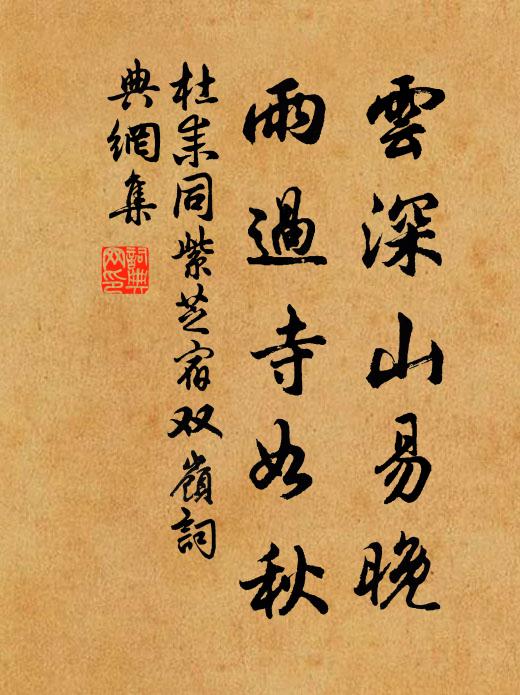 雲深山易晚
雨過寺如秋
杜耒同紫芝宿双嶺詞
典網集
詞典
网印